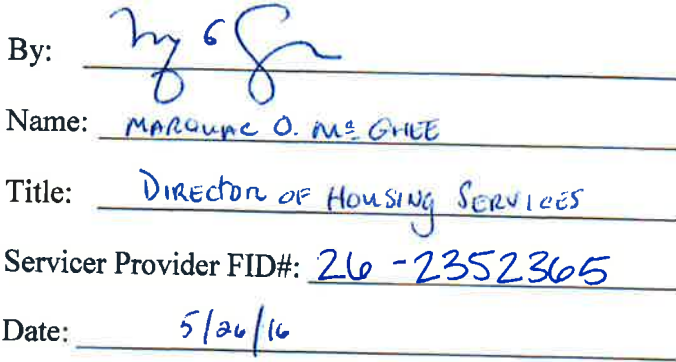 By:
Name: MARQUAC O. Mc GHEE
Title: DIRECTOR OF HOUSING SERVICES
Servicer Provider FID#: 26-2352365
Date: 5/26/16